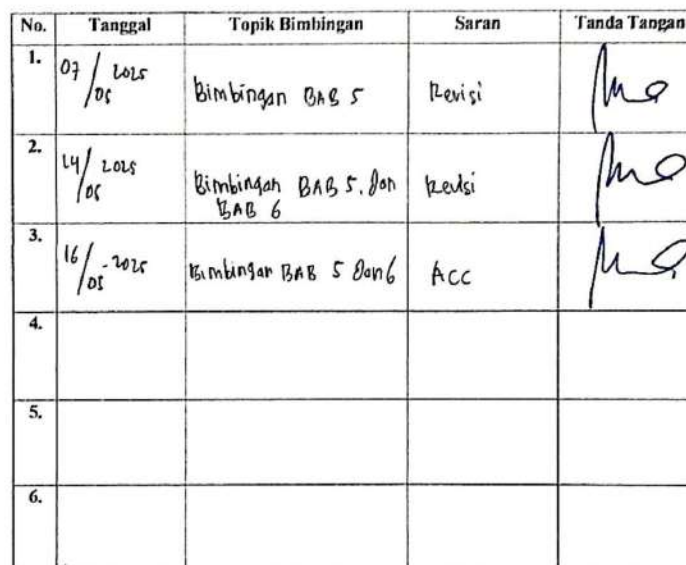 No. Tanggal Topik Bimbingan Saran Tanda Tangan
1. 07/05 2025 Bimbingan BAB 5 Revisi
2. 14/05 2025 Bimbingan BAB 5. dan Revisi
BAB 6
3. 16/05 - 2025 Bimbingan BAB 5 dan 6 ACC
4.
5.
6.